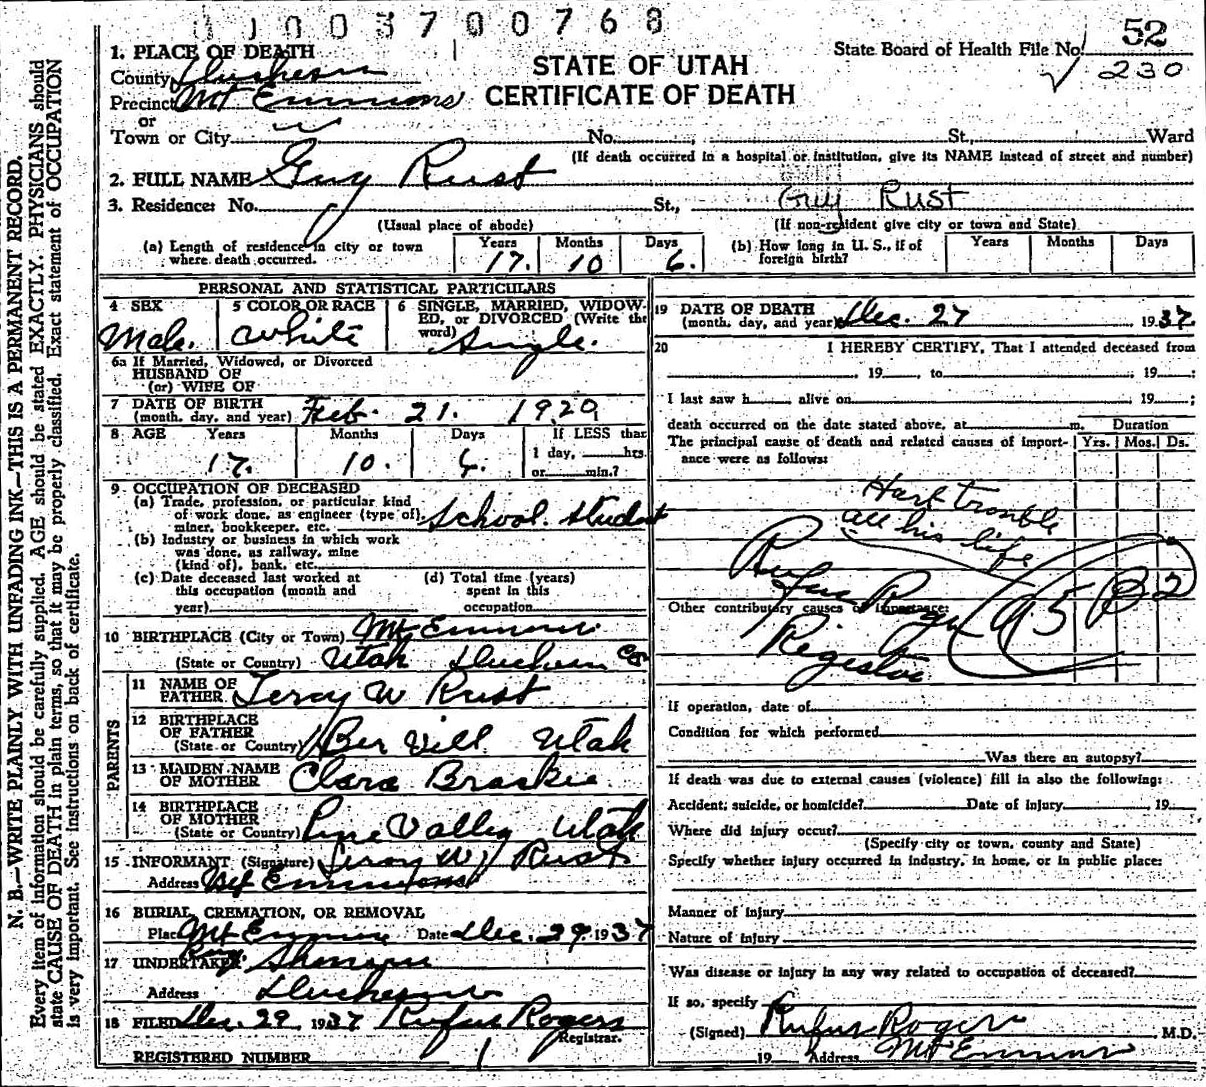 003700768
1. PLACE OF DEATH
STATE OF UTAH
CERTIFICATE OF DEATH
State Board of Health File No. 52
230
County Duchesne
Precinct Mt Emmons
or
Town or City No. St., Ward
(If death occurred in a hospital or institution, give its NAME instead of street and number)
2. FULL NAME Guy Rust
3. Residence: No. St., Guy Rust
(Usual place of abode) (If non-resident give city or town and State)
(a) Length of residence in city or town where death occurred. Years 17. Months 10 Days 6.
(b) How long in U. S., if of foreign birth? Years Months Days
PERSONAL AND STATISTICAL PARTICULARS
4 SEX Male.
5 COLOR OR RACE White
6 SINGLE, MARRIED, WIDOWED, or DIVORCED (Write the word) Single.
6a If Married, Widowed, or Divorced
HUSBAND OF
(or) WIFE OF
7 DATE OF BIRTH
(month, day, and year) Feb. 21. 1920
8 AGE Years 17. Months 10. Days 6. If LESS than
1 day, hrs.
or min.?
9 OCCUPATION OF DECEASED
(a) Trade, profession, or particular kind
of work done, as engineer (type of)
miner, bookkeeper, etc. School student
(b) Industry or business in which work
was done, as railway, mine
(kind of), bank, etc.
(c) Date deceased last worked at
this occupation (month and
year)
(d) Total time (years)
spent in this
occupation
10 BIRTHPLACE (City or Town) Mt Emmons
(State or Country) Utah Duchesne Co
PARENTS
11 NAME OF
FATHER Leroy W Rust
12 BIRTHPLACE
OF FATHER
(State or Country) Ber Vill Utah
13 MAIDEN NAME
OF MOTHER Clara Braskie
14 BIRTHPLACE
OF MOTHER
(State or Country) Pine Valley Utah
15 INFORMANT (Signature) Leroy W Rust
Address Mt Emmons
16 BURIAL, CREMATION, OR REMOVAL
Place Mt Emmons Date Dec. 29. 1937
17 UNDERTAKER
Address Duchesne
18 FILED Dec. 29 1937 Rufus Rogers
Registrar.
REGISTERED NUMBER 1
19 DATE OF DEATH
(month, day, and year) Dec. 27 1937
20 I HEREBY CERTIFY, That I attended deceased from
, 19 , to , 19 ;
I last saw h alive on 19 ;
death occurred on the date stated above, at m. Duration
The principal cause of death and related causes of import- Yrs. Mos. Ds.
ance were as follows:
Hart trouble
all his life
Rufus Rogers
Registrar
95 B 2
Other contributory causes of importance:
If operation, date of
Condition for which performed
Was there an autopsy?
If death was due to external causes (violence) fill in also the following:
Accident, suicide, or homicide? Date of injury 19
Where did injury occur?
(Specify city or town, county and State)
Specify whether injury occurred in industry, in home, or in public place:
Manner of Injury
Nature of Injury
Was disease or injury in any way related to occupation of deceased?
If so, specify
(Signed) Rufus Rogers M.D.
19 Address Mt Emmons
N. B.—WRITE PLAINLY WITH UNFADING INK—THIS IS A PERMANENT RECORD.
Every item of information should be carefully supplied. AGE should be stated EXACTLY. PHYSICIANS should
state CAUSE OF DEATH in plain terms, so that it may be properly classified. Exact statement of OCCUPATION
is very important. See instructions on back of certificate.